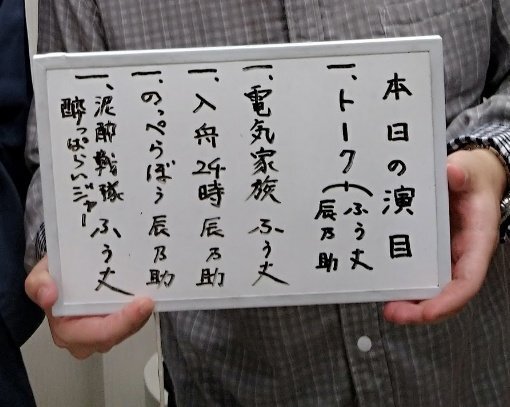 本日の演目
一、トーク(ふう丈
辰乃助
一、電気家族 ふう丈
一、入舟24時 辰乃助
一、のっぺらぼう 辰乃助
一、泥酔戦隊
酔っぱらいジャー ふう丈